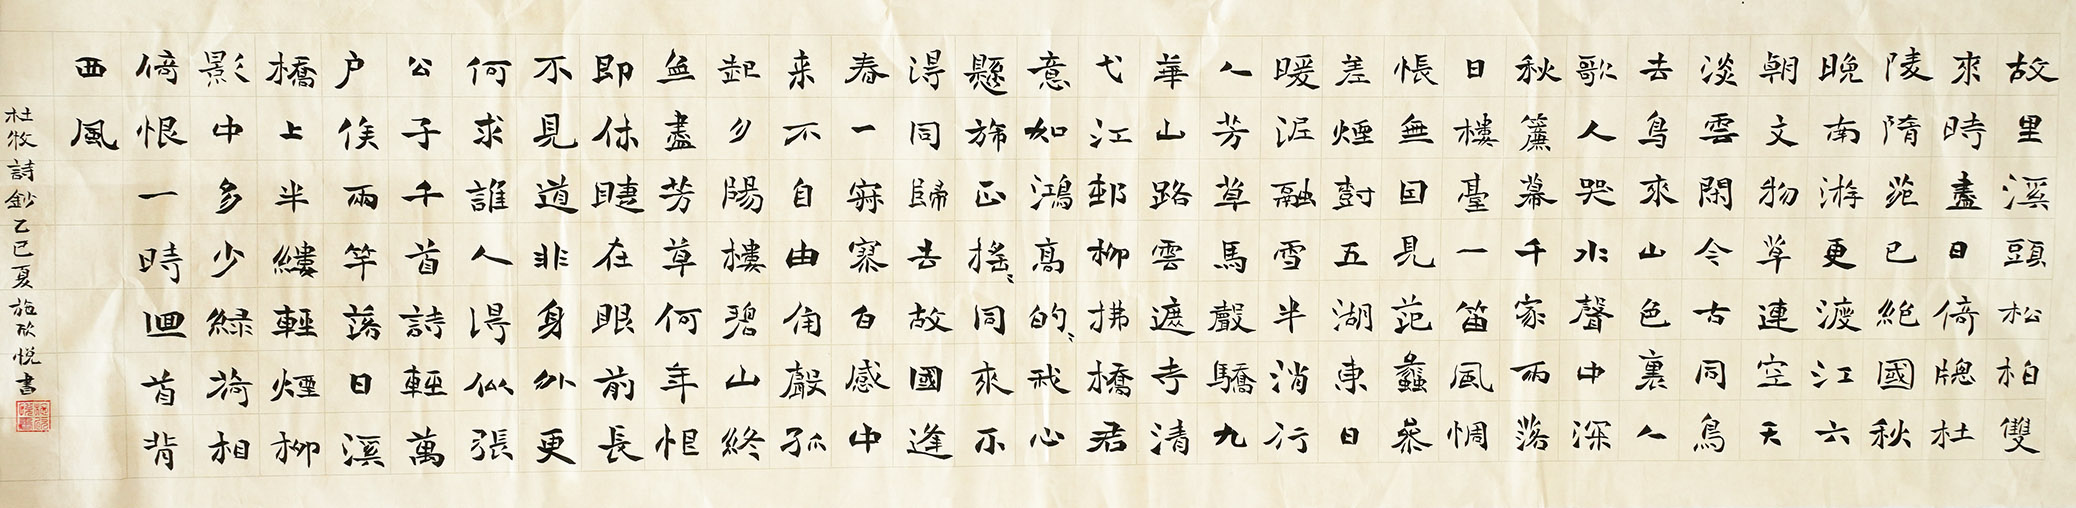 故里溪頭松柏雙
來時盡日倚牕杜
陵隋苑已絕國秋
晚南游更渡江六
朝文物草連空天
淡雲閑今古同鳥
去鳥來山色裏人
歌人哭水聲中深
秋簾幕千家雨落
日樓臺一笛風惆
悵無因見范蠡參
差煙樹五湖東日
暖泥融雪半消行
人芳草馬聲驕九
華山路雲遮寺清
弋江邨柳拂橋君
意如鴻高的〻我心
懸旆正搖〻同來不
得同歸去故國逢
春一寂寥百感中
来不自由角聲孤
起夕陽樓碧山終
無盡芳草何年恨
即休睫在眼前長
不見道非身外更
何求誰人得似張
公子千首詩輕萬
户侯兩竿落日溪
橋上半縷輕煙柳
影中多少綠荷相
倚恨一時迴首背
西風
杜牧詩鈔乙巳夏施欣悦書